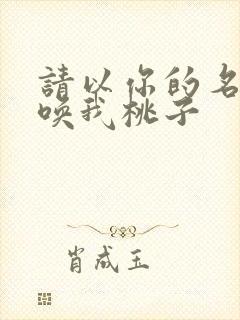 請以你的名
喚我桃子
肖成玉